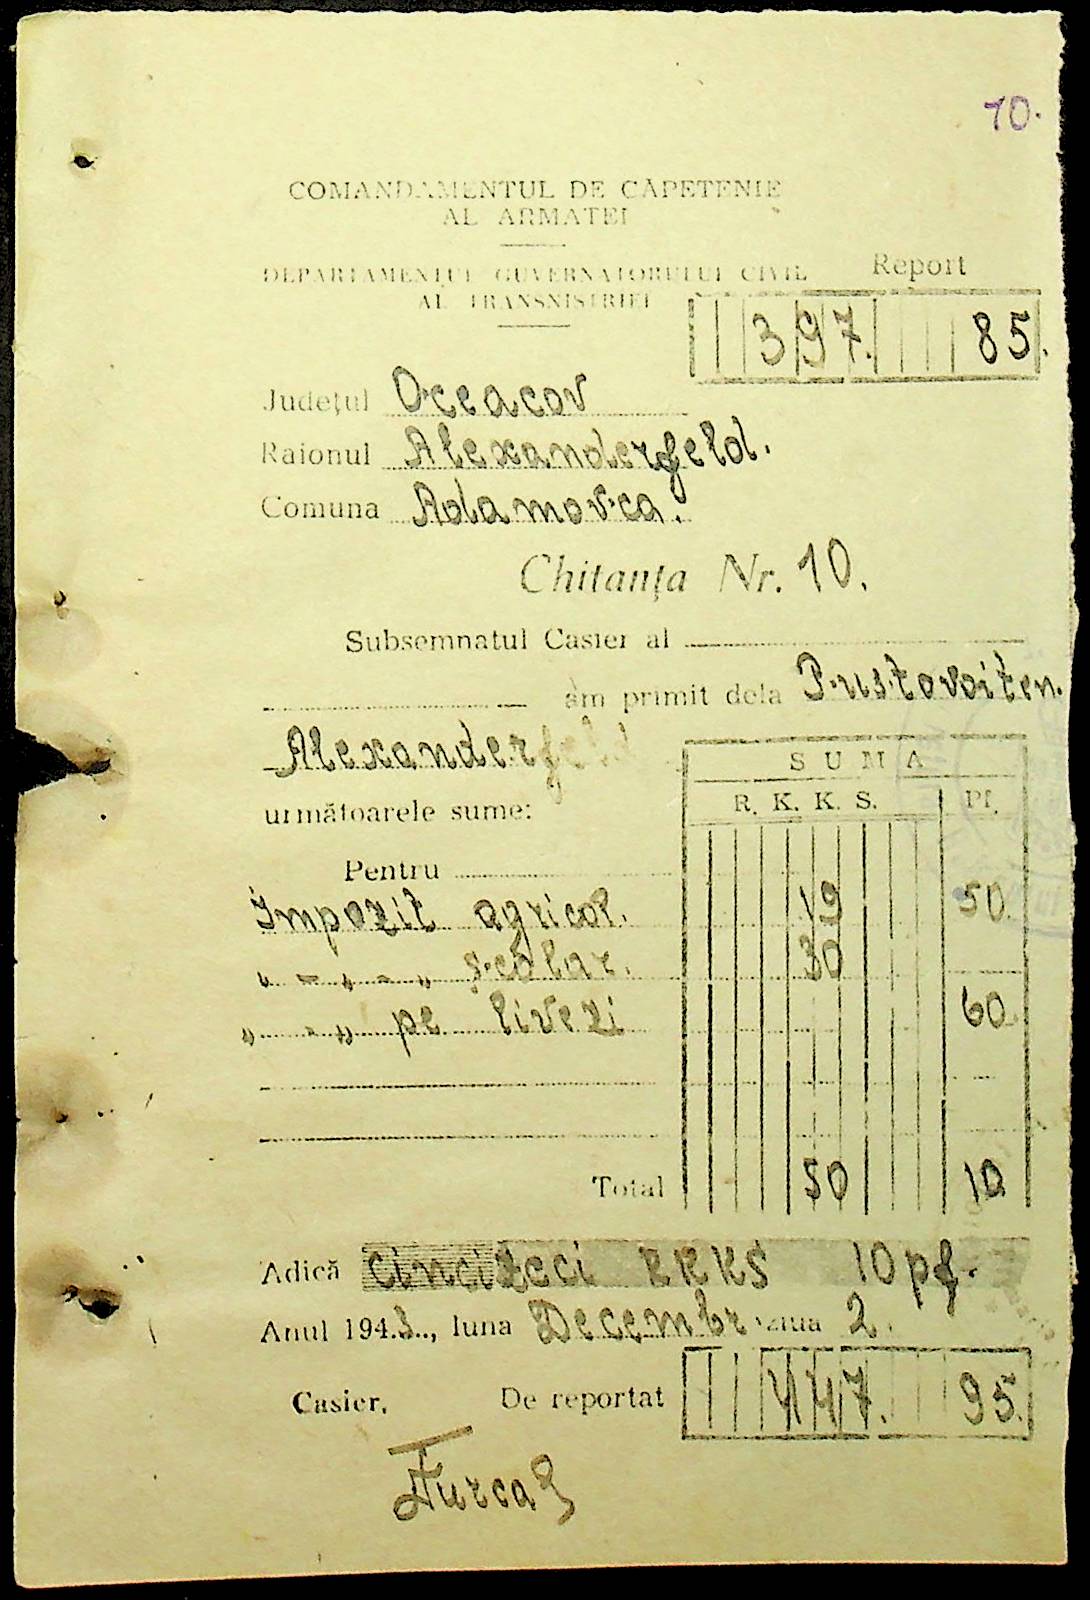 10.
COMANDAMENTUL DE CĂPETENIE
AL ARMATEI
DEPARTAMENTUL GUVERNATORULUI CIVIL
AL TRANSNISTRIEI
Report
397. 85.
Județul Oceacov
Raionul Alexanderfeld.
Comuna Adamovca.
Chitanța Nr. 10.
Subsemnatul Casier al
am primit dela Pustovoiten.
Alexanderfeld
următoarele sume:
SUMA
R. K. K. S. Pf.
Pentru
Impozit agricol. 19 50.
„ = „ = „ școlar. 30
„ = „ pe livezi 60
Total 50 10
Adică cincizeci RKKS 10 pf.
Anul 1943., luna Decembr ziua 2.
Casier, De reportat 447. 95.